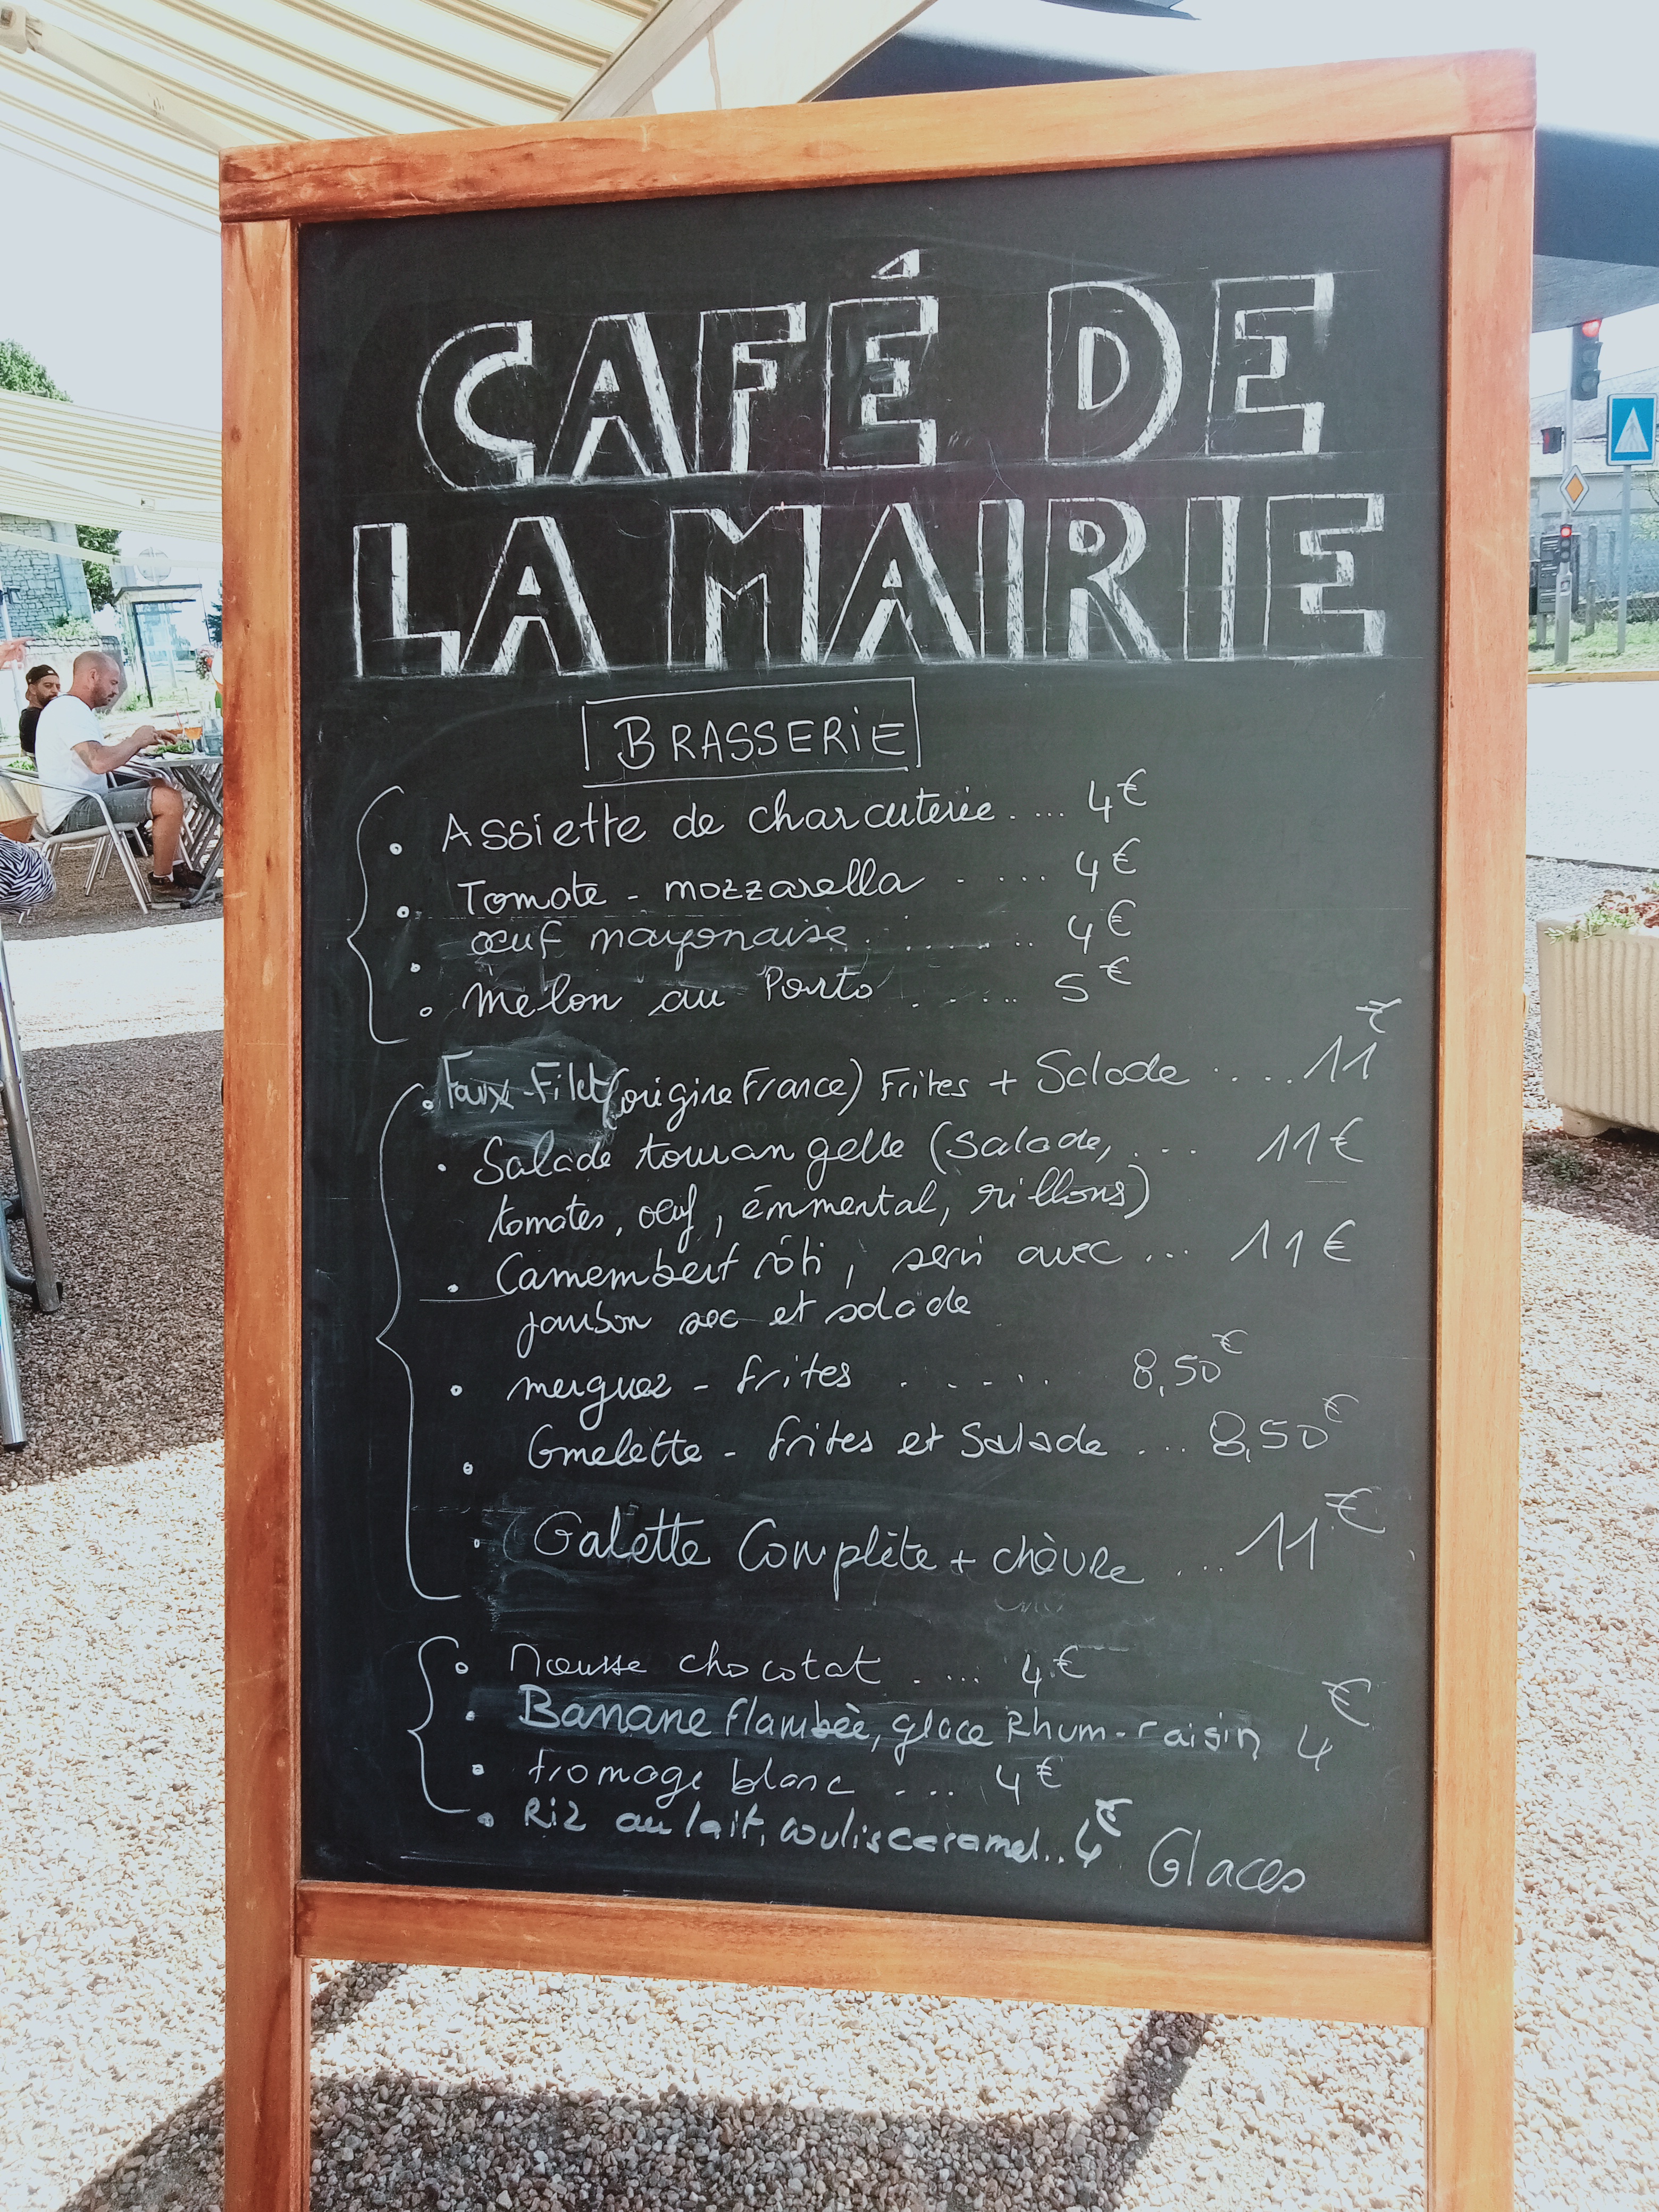 CAFÉ DE
LA MAIRIE
BRASSERIE
• Assiette de charcuterie .... 4€
• Tomate - mozzarella . .... 4€
• œuf mayonaise ........ 4€
• melon au Porto ..... 5€
• Faux-Filet (origine France) Frites + Salade .... 11€
• Salade tourangelle (salade, ... 11€
tomates, œuf, émmental, rillons)
• Camembert rôti, servi avec ... 11€
jambon sec et salade
• merguez - frites ..... 8,50€
• Omelette - frites et Salade ... 8,50€
• Galette Complète + chèvre ... 11€
• Mousse chocolat .... 4€
• Banane flambèe, glace Rhum-raisin 4€
• fromage blanc .... 4€
• Riz au lait, coulis caramel.. 4€
Glaces